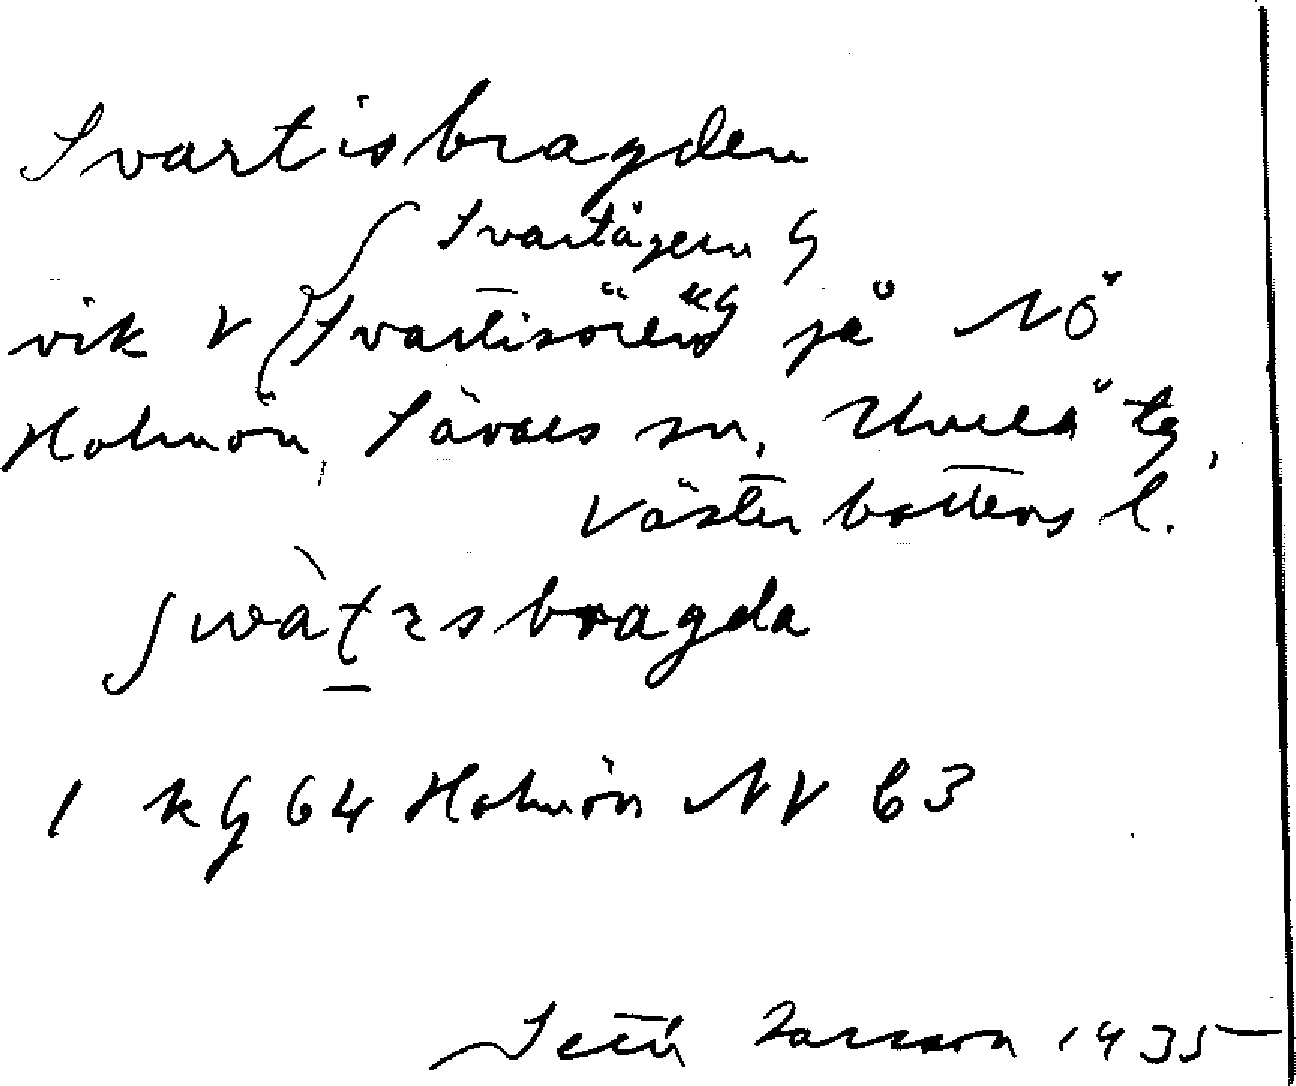 Svartisbragden
Svartågern G
vik V Svartisören kG på NÖ
Holmön, Sävars sn, Umeå tg,
Västerbottens l.
1 kG 64 Holmön NV b3
Larsson 1935